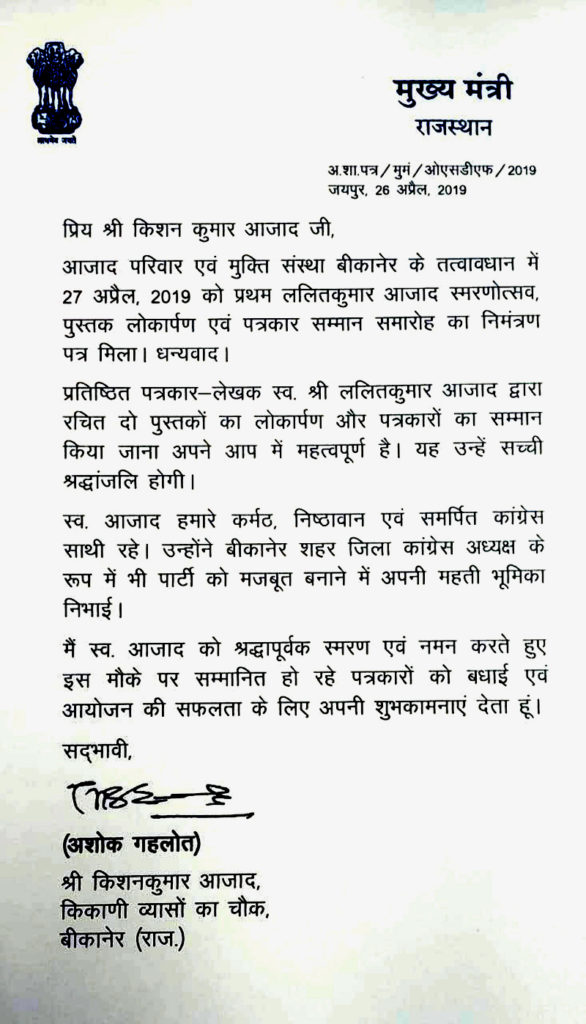 सत्यमेव जयते
मुख्य मंत्री
राजस्थान
अ.शा.पत्र/मुमं/ओएसडीएफ/2019
जयपुर, 26 अप्रैल, 2019
प्रिय श्री किशन कुमार आजाद जी,
आजाद परिवार एवं मुक्ति संस्था बीकानेर के तत्वावधान में
27 अप्रैल, 2019 को प्रथम ललितकुमार आजाद स्मरणोत्सव,
पुस्तक लोकार्पण एवं पत्रकार सम्मान समारोह का निमंत्रण
पत्र मिला। धन्यवाद।
प्रतिष्ठित पत्रकार–लेखक स्व. श्री ललितकुमार आजाद द्वारा
रचित दो पुस्तकों का लोकार्पण और पत्रकारों का सम्मान
किया जाना अपने आप में महत्वपूर्ण है। यह उन्हें सच्ची
श्रद्धांजलि होगी।
स्व. आजाद हमारे कर्मठ, निष्ठावान एवं समर्पित कांग्रेस
साथी रहे। उन्होंने बीकानेर शहर जिला कांग्रेस अध्यक्ष के
रूप में भी पार्टी को मजबूत बनाने में अपनी महती भूमिका
निभाई।
मैं स्व. आजाद को श्रद्धापूर्वक स्मरण एवं नमन करते हुए
इस मौके पर सम्मानित हो रहे पत्रकारों को बधाई एवं
आयोजन की सफलता के लिए अपनी शुभकामनाएं देता हूं।
सद्भावी,
(अशोक गहलोत)
श्री किशनकुमार आजाद,
किकाणी व्यासों का चौक,
बीकानेर (राज.)